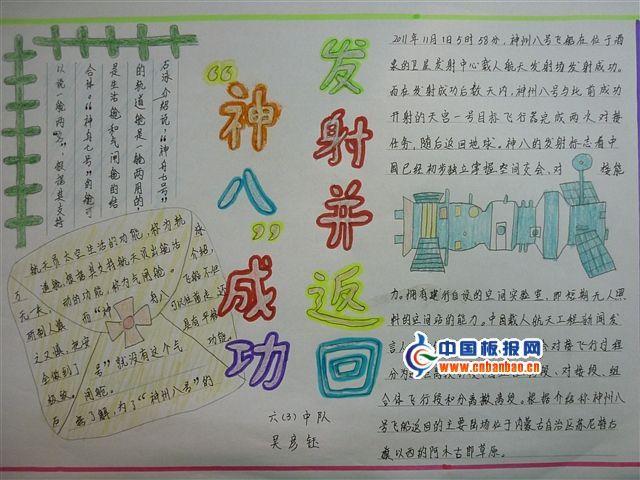 “神八”成功
发射并返回
六(3)中队
吴彦钰
石泳介绍说，“神舟七号”
的轨道舱是一舱两用的，
是生活舱和气闸舱的结
合体。“神舟七号”的舱可
以说一舱两
航天员太空生活的功能，称为轨
道舱，根据其支持航天员出舱活
动的功能，称为气闸舱。
而“神
号”就没有这个气
闸舱。
据了解，为了“神州八号”的
2011年11月1日5时58分，神州八号飞船在位于酒
泉的卫星发射中心载人航天发射场发射成功。
而在发射成功后数天内，神州八号与此前成功
开射的天宫一号目标飞行器完成两次对接
任务，随后返回地球。神八的发射标志着中
国已经初步独立掌握空间交会、对接能
力。拥有建
的空间实验室，即短期无人照
料的空间站的能力。中国载人航天工程新闻发
言人
会对接飞行过程
分为
段、对接段、组
合体飞行段和分离撤离段。根据介绍神州八
号飞船返回的主要陆场位于内蒙古自治区苏尼特右
旗以西的阿木古郎草原。
中国板报网
www.cnbanbao.cn